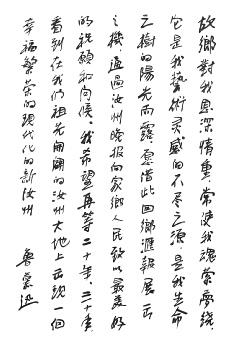 故鄉對我恩深情重，常使我魂萦夢繞，
它是我藝術灵感的不尽之源，是我生命
之樹的陽光雨露。愿借此回鄉滙報展云
之機，通過汝州晚报向家鄉人民致以最美好
的祝願和问候。我希望再等二十年、三十年，
看到在我们祖先開闢的汝州大地上出現一個
幸福繁荣的現代化的新汝州
魯慕迅